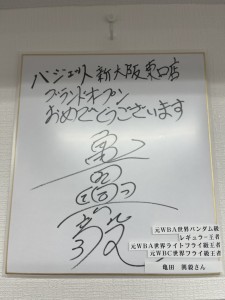 バジェット新大阪東口店
グランドオープン
おめでとうございます
亀田興毅
元WBA世界バンタム級
レギュラー王者
元WBA世界ライトフライ級王者
元WBC世界フライ級王者
亀田 興毅さん